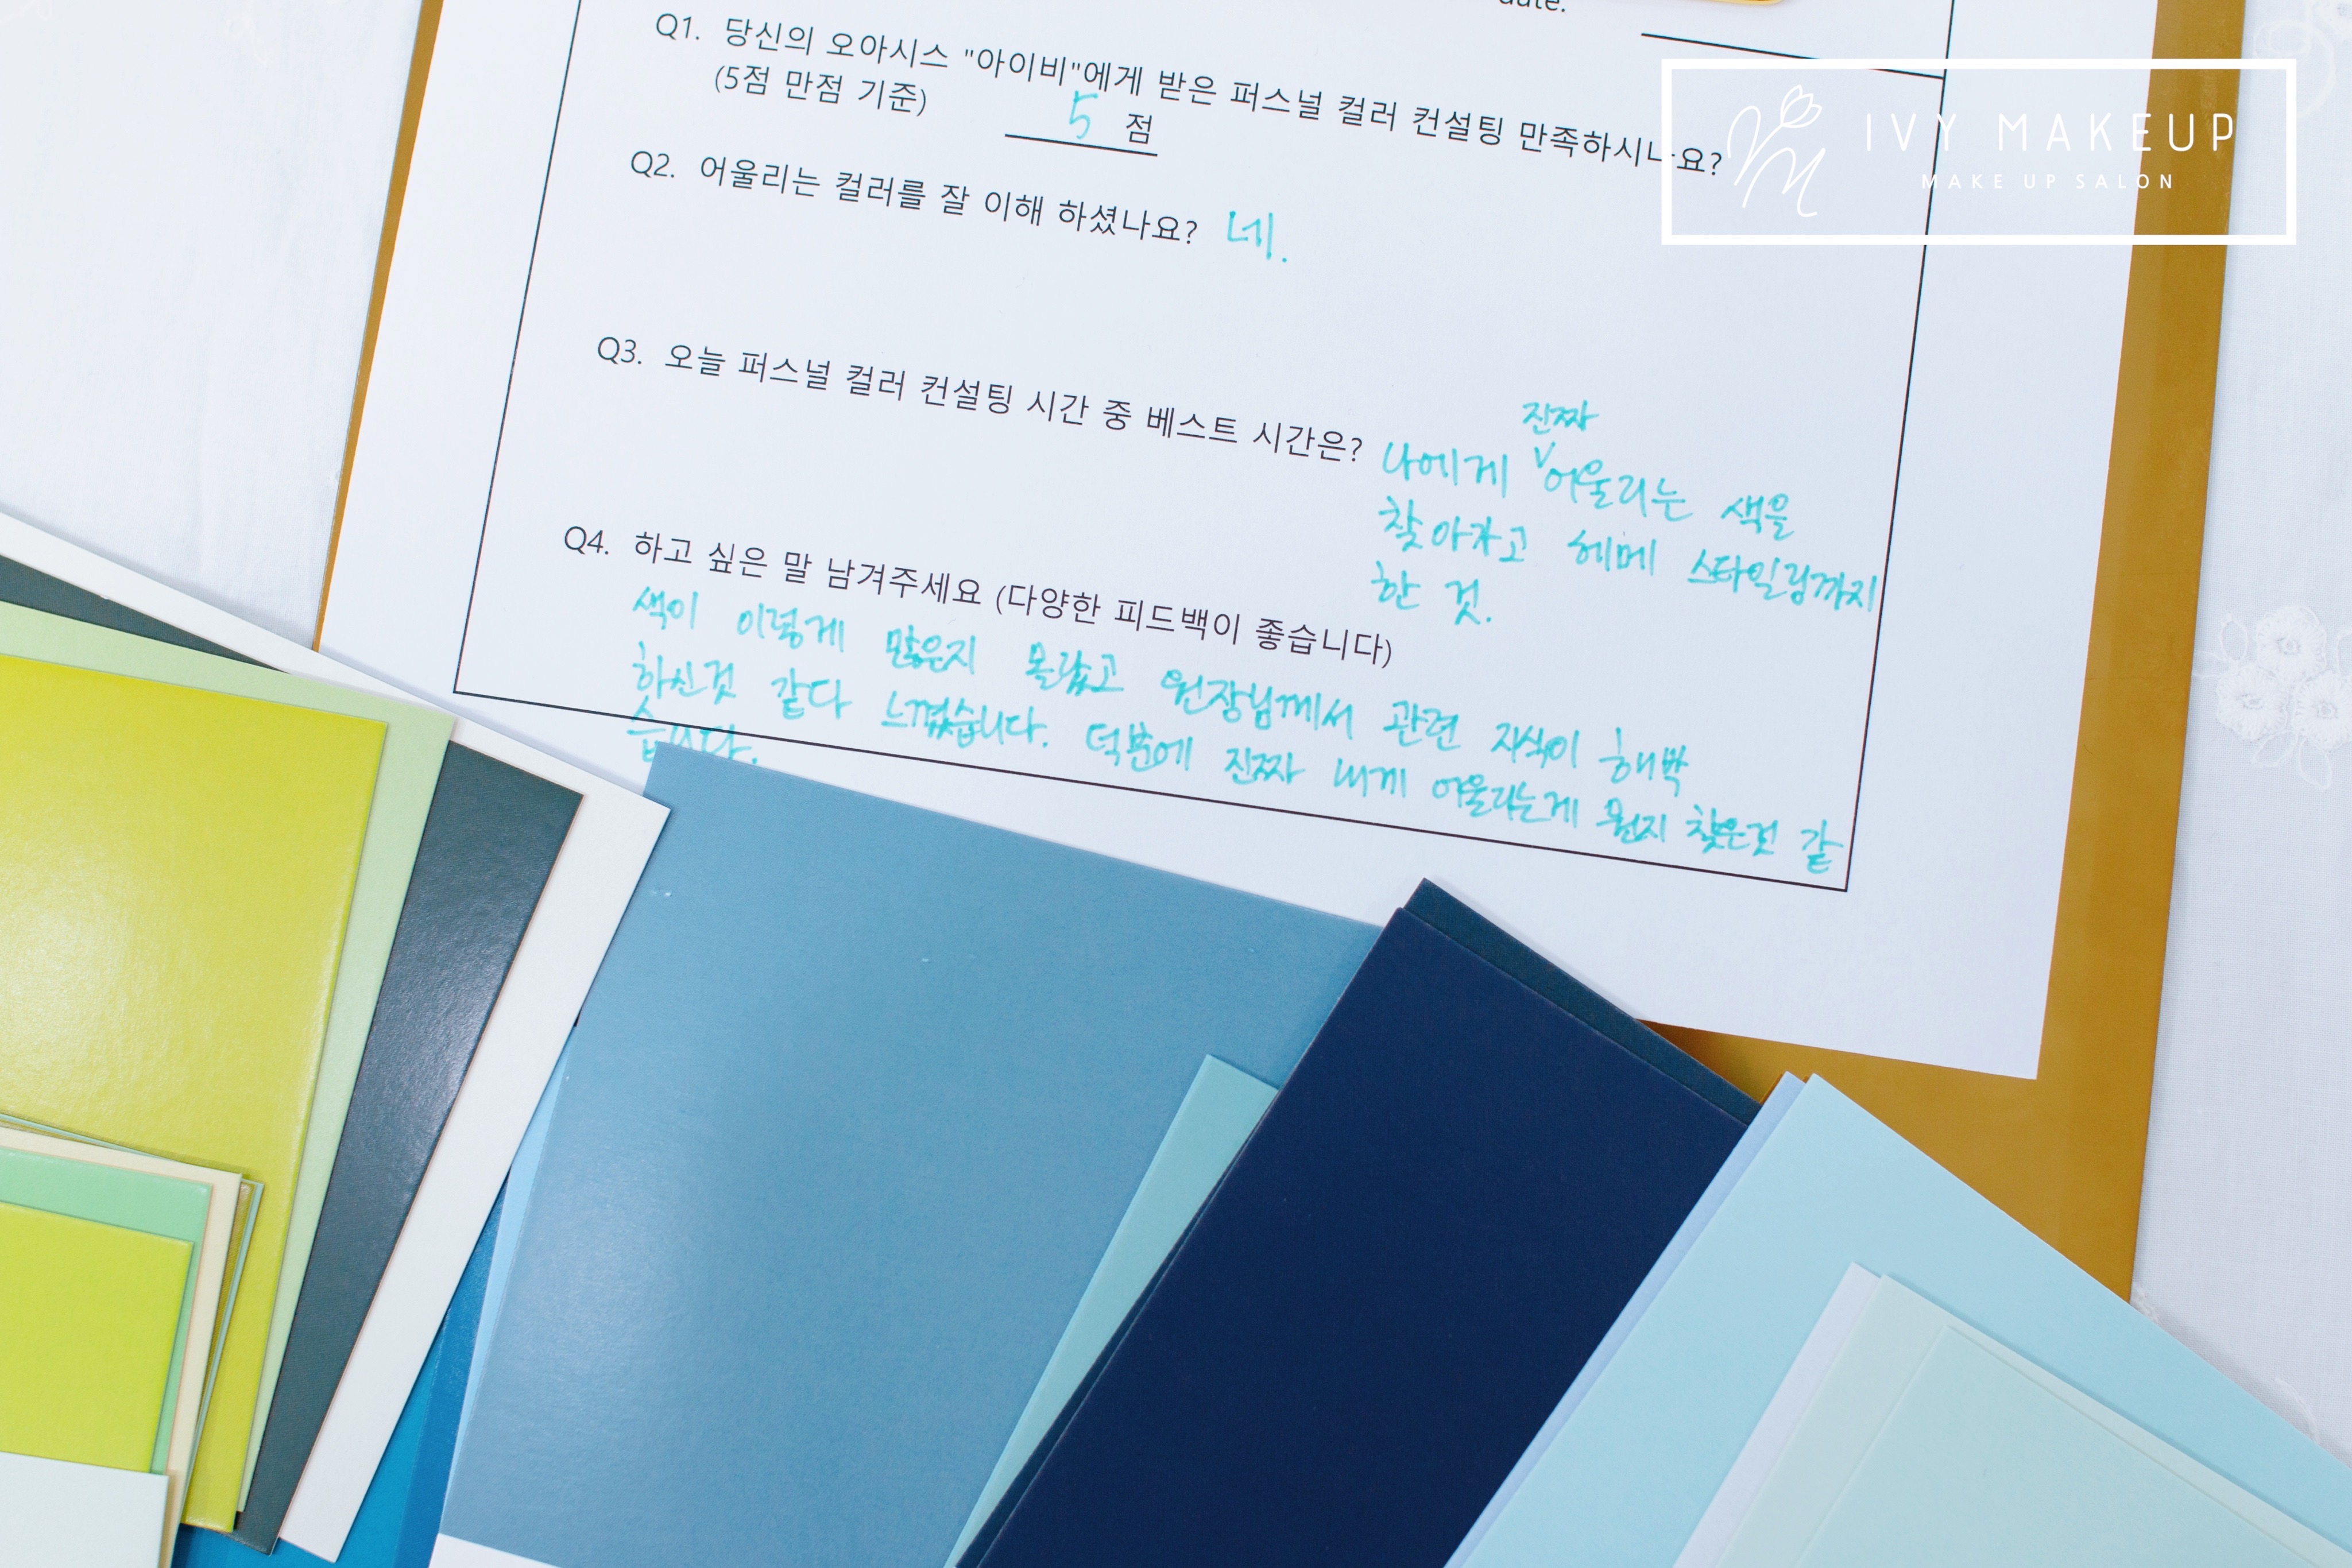 date.
Q1. 당신의 오아시스 "아이비"에게 받은 퍼스널 컬러 컨설팅 만족하시나요?
(5점 만점 기준) 5 점
Q2. 어울리는 컬러를 잘 이해 하셨나요? 네.
Q3. 오늘 퍼스널 컬러 컨설팅 시간 중 베스트 시간은?
진짜
나에게 ∨어울리는 색을
찾아가고 헤메 스타일링까지
한 것.
Q4. 하고 싶은 말 남겨주세요 (다양한 피드백이 좋습니다)
색이 이렇게 많은지 몰랐고 원장님께서 관련 지식이 해박
하신것 같다 느꼈습니다. 덕분에 진짜 내게 어울리는게 뭔지 찾은것 같
습니다.
IVY MAKEUP
MAKE UP SALON